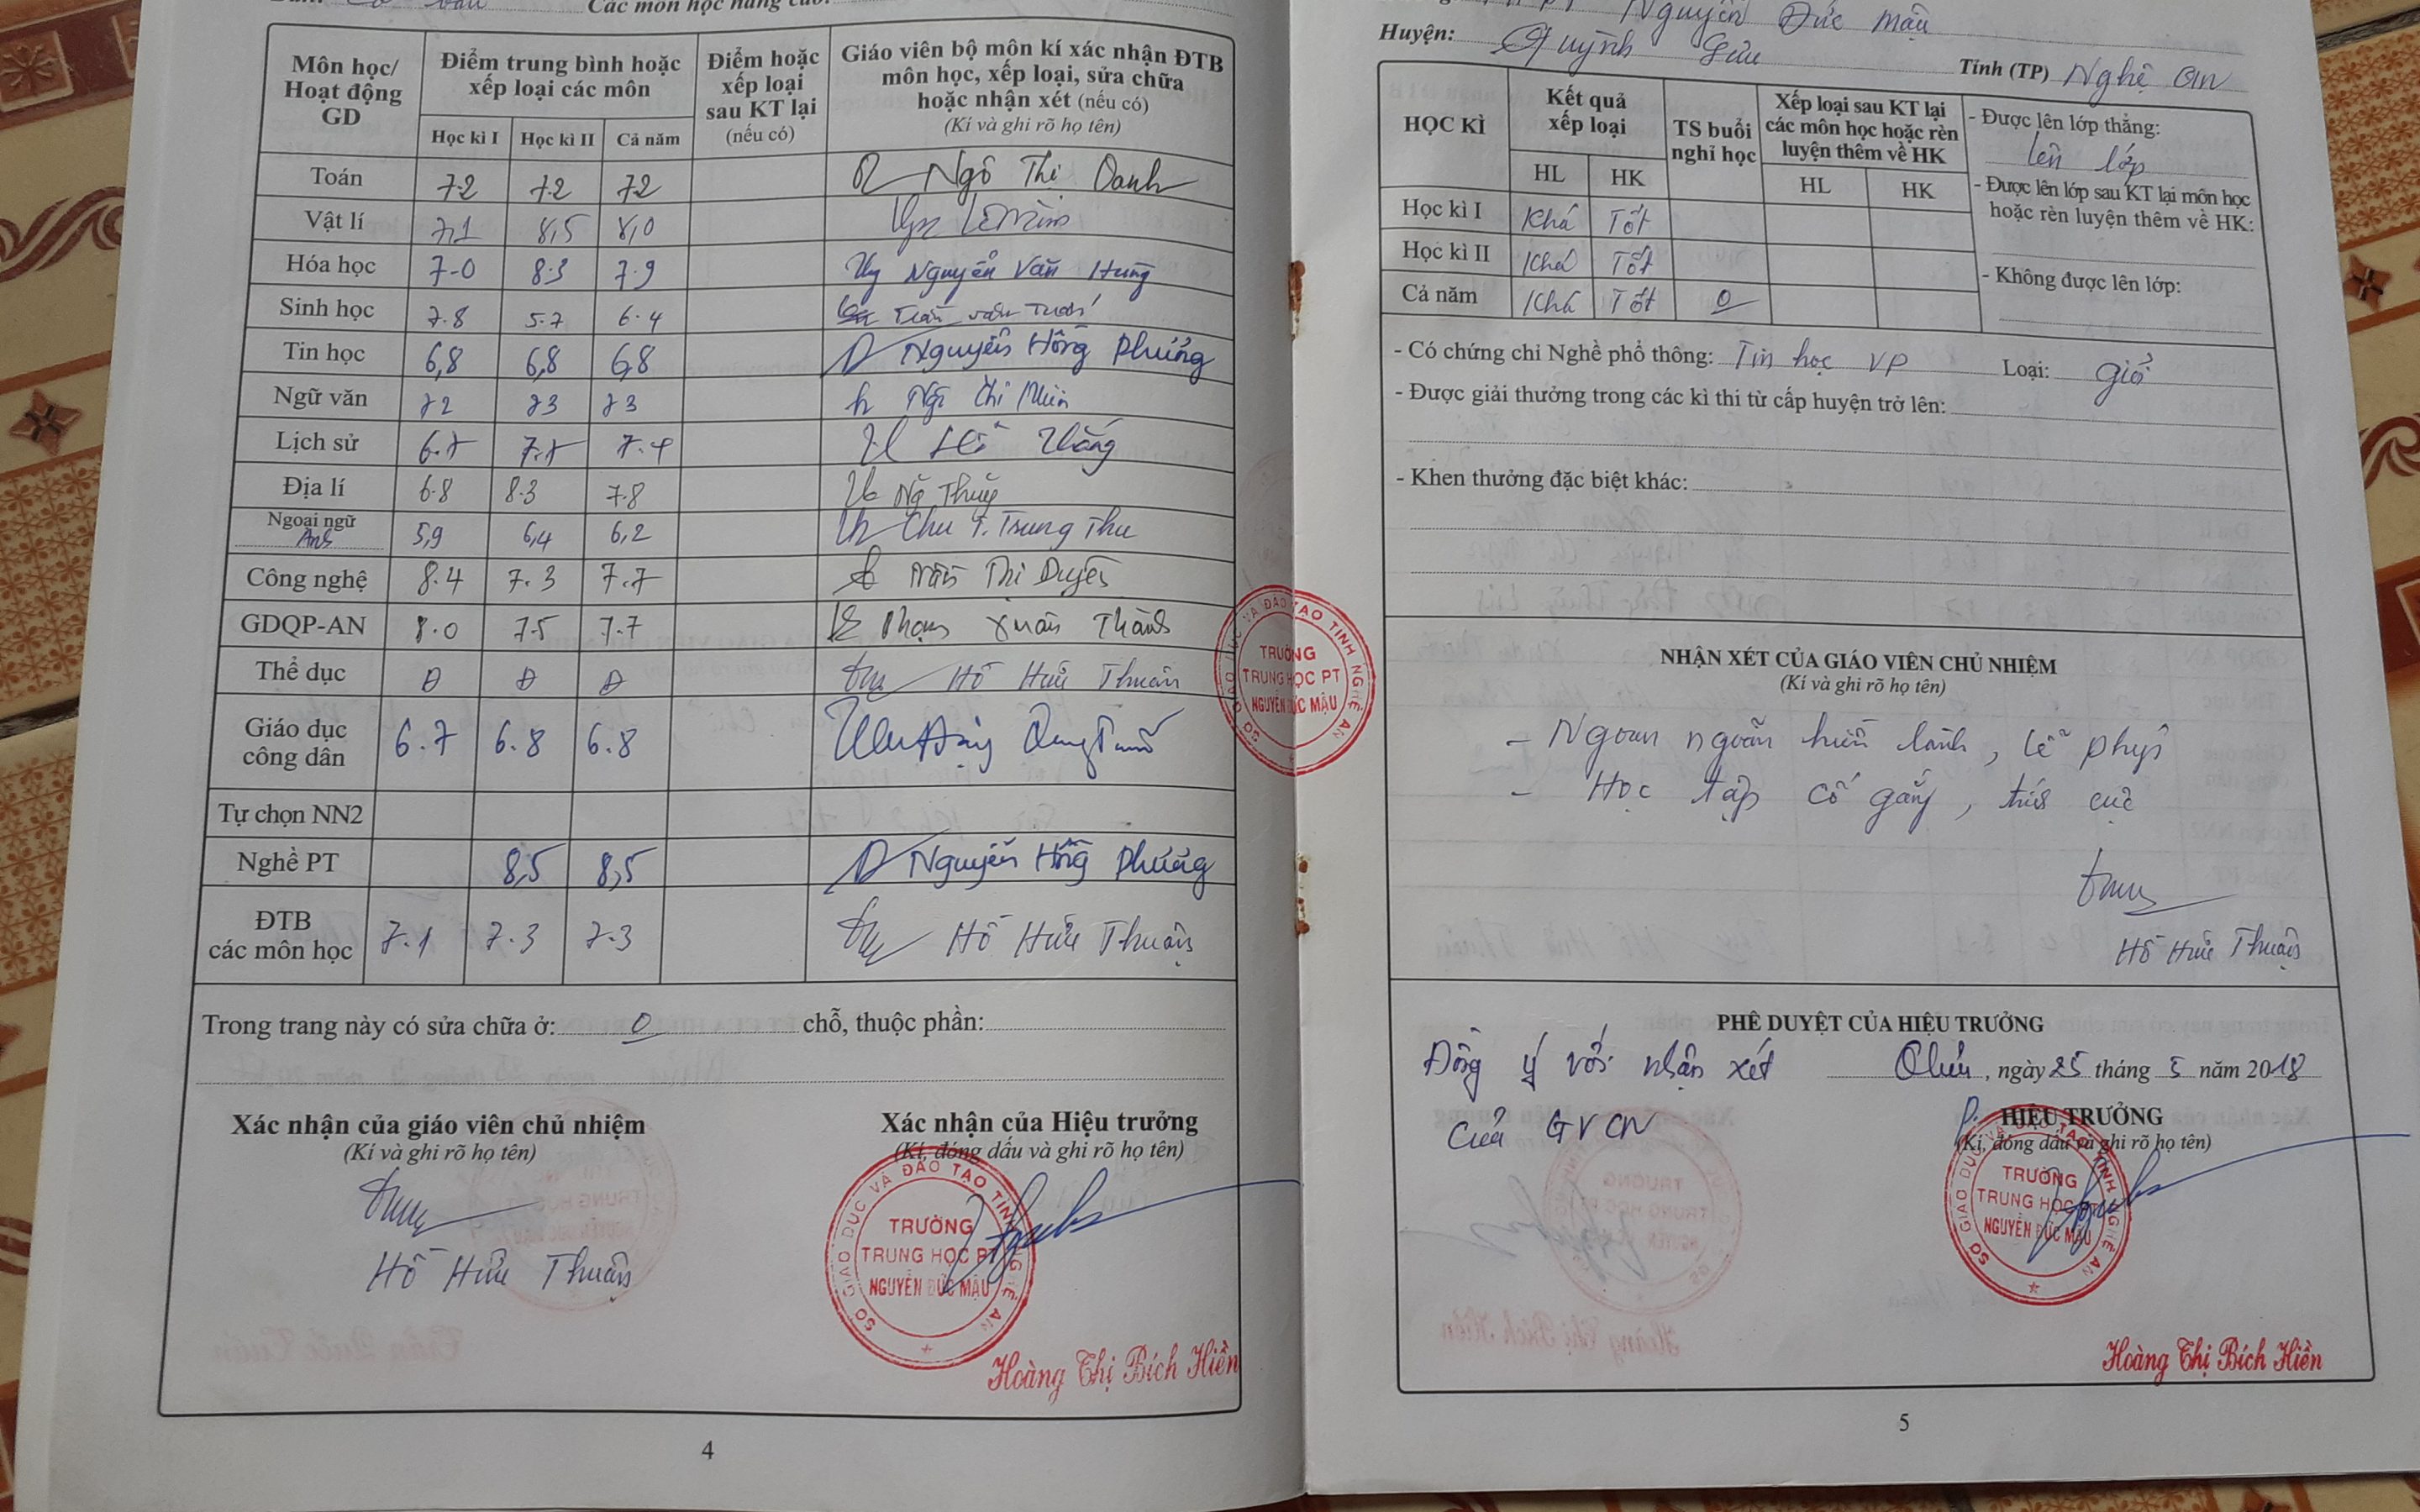 Các môn học nâng cao:
Môn học/ Hoạt động GD
Điểm trung bình hoặc xếp loại các môn
Điểm hoặc xếp loại sau KT lại (nếu có)
Giáo viên bộ môn kí xác nhận ĐTB môn học, xếp loại, sửa chữa hoặc nhận xét (nếu có)
(Kí và ghi rõ họ tên)
Học kì I Học kì II Cả năm
Toán 7.2 7.2 7.2 Ngô Thị Oanh
Vật lí 7,1 8,5 8,0
Hóa học 7.0 8.3 7.9 Nguyễn Văn Hùng
Sinh học 7.8 5.7 6.4 Trần Văn
Tin học 6,8 6,8 6,8 Nguyễn Hồng Phương
Ngữ văn 7 2 7 3 7 3
Lịch sử Hồ Thắng
Địa lí 6.8 8.3 7.8 Thủy
Ngoại ngữ Anh 5,9 6,4 6,2 Chu T. Trung Thu
Công nghệ 8.4 7.3 7.7 Trần Thị Duyên
GDQP-AN 8.0 7.5 7.7 Phạm Xuân Thành
Thể dục Đ Đ Đ Hồ Hữu Thuận
Giáo dục công dân 6.7 6.8 6.8
Tự chọn NN2
Nghề PT 8,5 8,5 Nguyễn Hồng Phương
ĐTB các môn học 7.1 7.3 7.3 Hồ Hữu Thuận
Trong trang này có sửa chữa ở: 0 chỗ, thuộc phần:
Xác nhận của giáo viên chủ nhiệm
(Kí và ghi rõ họ tên)
Hồ Hữu Thuận
Xác nhận của Hiệu trưởng
(Kí, đóng dấu và ghi rõ họ tên)
SỞ GIÁO DỤC VÀ ĐÀO TẠO TỈNH NGHỆ AN
TRƯỜNG
TRUNG HỌC PT
NGUYỄN ĐỨC MẬU
Hoàng Thị Bích Hiền
4
SỞ GIÁO DỤC VÀ ĐÀO TẠO TỈNH NGHỆ AN
TRƯỜNG
TRUNG HỌC PT
NGUYỄN ĐỨC MẬU
Nguyễn Đức Mậu
Huyện: Quỳnh Lưu Tỉnh (TP) Nghệ An
HỌC KÌ
Kết quả xếp loại
TS buổi nghỉ học
Xếp loại sau KT lại các môn học hoặc rèn luyện thêm về HK
HL HK HL HK
Học kì I Khá Tốt
Học kì II Khá Tốt
Cả năm Khá Tốt 0
- Được lên lớp thẳng:
lên lớp
- Được lên lớp sau KT lại môn học
hoặc rèn luyện thêm về HK:
- Không được lên lớp:
- Có chứng chỉ Nghề phổ thông: Tin học VP Loại: giỏi
- Được giải thưởng trong các kì thi từ cấp huyện trở lên:
- Khen thưởng đặc biệt khác:
NHẬN XÉT CỦA GIÁO VIÊN CHỦ NHIỆM
(Kí và ghi rõ họ tên)
- Ngoan ngoãn hiền lành, lễ phép
- Học tập cố gắng, tích cực
Hồ Hữu Thuận
PHÊ DUYỆT CỦA HIỆU TRƯỞNG
Đồng ý với nhận xét
của GVCN
, ngày 25 tháng 5 năm 2018
P. HIỆU TRƯỞNG
(Kí, đóng dấu và ghi rõ họ tên)
SỞ GIÁO DỤC VÀ ĐÀO TẠO TỈNH NGHỆ AN
TRƯỜNG
TRUNG HỌC PT
NGUYỄN ĐỨC MẬU
Hoàng Thị Bích Hiền
5